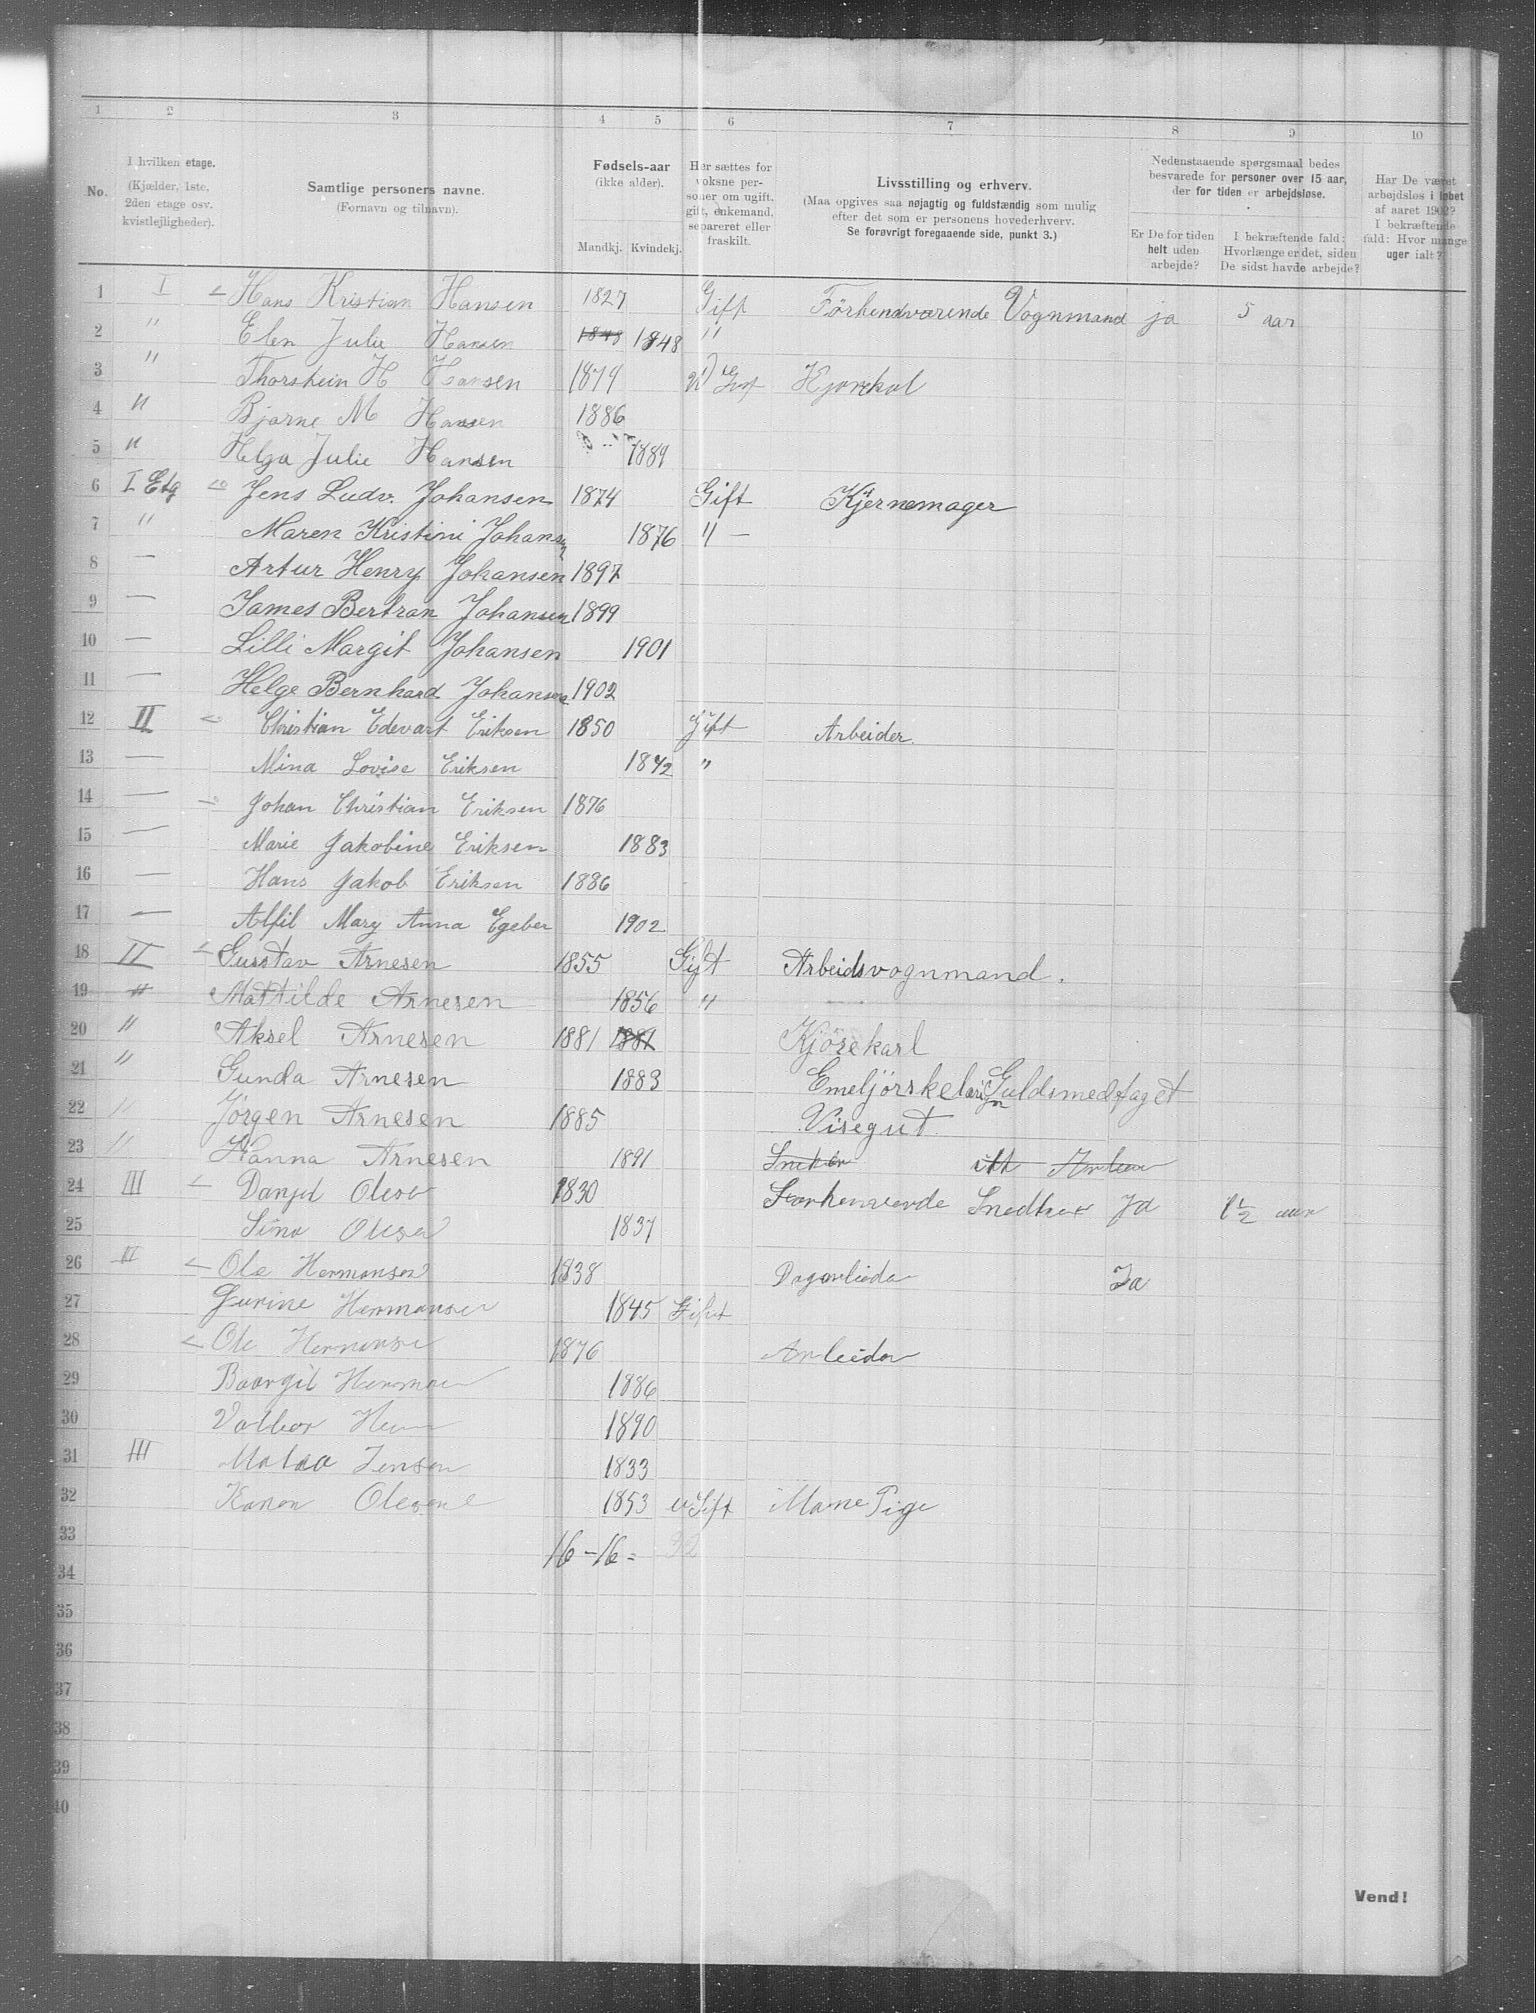 1 2 3 4 5 6 7 8 9 10
No.
I hvilken etage.
(Kjælder, 1ste, 2den etage osv. kvistlejligheder).
Samtlige personers navne.
(Fornavn og tilnavn).
Fødsels-aar
(ikke alder).
Mandkj. Kvindekj.
Her sættes for voksne personer om ugift, gift, enkemand, separeret eller fraskilt.
Livsstilling og erhverv.
(Maa opgives saa nøjagtig og fuldstændig som mulig
efter det som er personens hovederhverv.
Se forøvrigt foregaaende side, punkt 3.)
Nedenstaaende spørgsmaal bedes
besvarede for personer over 15 aar,
der for tiden er arbejdsløse.
Er De for tiden helt uden arbejde?
I bekræftende fald: Hvorlænge er det, siden De sidst havde arbejde?
Har De været arbejdsløs i løbet af aaret 1902? I bekræftende fald: Hvor mange uger ialt?
1 I Hans Kristian Hansen 1827 Gift Förhendværende Vognmand ja 5 aar
2 " Elen Julie Hansen 1848 1848 "
3 " Thorstein H Hansen 1879
4 " Bjarne M Hansen 1886
5 " Helga Julie Hansen 1889
6 I Etg Jens Ludv. Johansen 1874 Gift Kjernemager
7 " Maren Kristini Johansen 1876 " —
8 — Artur Henry Johansen 1897
9 — James Bertran Johansen 1899
10 — Lilli Margit Johansen 1901
11 — Helge Bernhard Johansen 1902
12 II Christian Edevart Eriksen 1850 Gift Arbeider.
13 — Mina Lovise Eriksen 1842 "
14 — Johan Christian Eriksen 1876
15 — Marie Jakobine Eriksen 1883
16 — Hans Jakob Eriksen 1886
17 — Alfil Mary Anna Egeber 1902
18 II Gusstav Arnesen 1855 Gift Arbeidsvognmand.
19 " Mattilde Arnesen 1856 "
20 " Aksel Arnesen 1881 1881 Kjörekarl
21 " Gunda Arnesen 1883 Guldsmedfaget
22 " Jörgen Arnesen 1885 Visegut
23 " Hanna Arnesen 1891
24 III Olsen 1830 Snedker Ja 1½ aar
25 Olsen 1837
26 II Ole Hermansen 1838 Dagarbeider Ja
27 Gurine Hermansen 1845 Gift
28 Ole Hermansen 1876 Arbeider
29 1886
30 1890
31 III Jensen 1833
32 Karen Olesen 1853 uGift Pige
33 16 – 16 = 32
34
35
36
37
38
39
40
Vend!